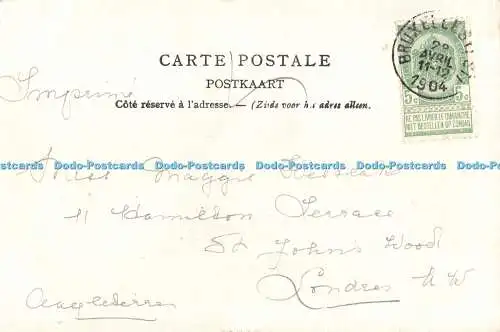 CARTE POSTALE
POSTKAART
Côté réservé à l'adresse. — (Zijds voor het adres alleen.
Imprimé
BRUXELLES
28
AVRIL
11-12
1904
5c 5c
NE PAS LIVRER LE DIMANCHE
NIET BESTELLEN OP ZONDAG
Dodo-Postcards Dodo-Postcards Dodo-Postcards Dodo-Postcards Dodo-Postcards
Miss Maggie
11 Hamilton Terrace
St John's Wood
Londres N W
Angleterre